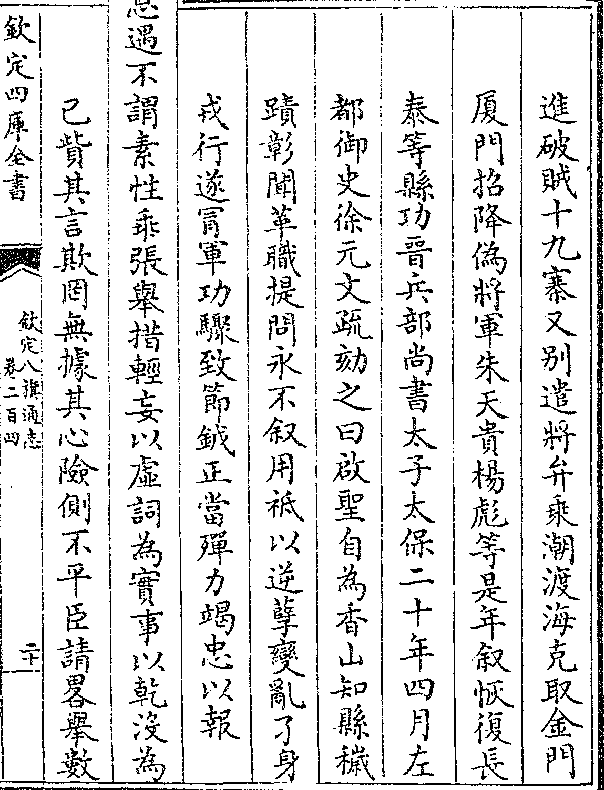 進破賊十九寨又别遣將弁乘潮渡海克取金門
厦門招降偽將軍朱天貴楊彪等是年叙恢復長
泰等縣功晉兵部尚書太子太保二十年四月左
都御史徐元文疏劾之曰啟聖自為香山知縣穢
蹟彰聞革職提問永不叙用祗以逆孽變亂了身
戎行遂冐軍功驟致節鉞正當殫力竭忠以報
恩遇不謂素性乖張舉措輕妄以虛詞為實事以乾沒為
己貲其言欺罔無據其心險側不平臣請畧舉數
欽定四庫全書
欽定八旗通志
卷二百四
二十